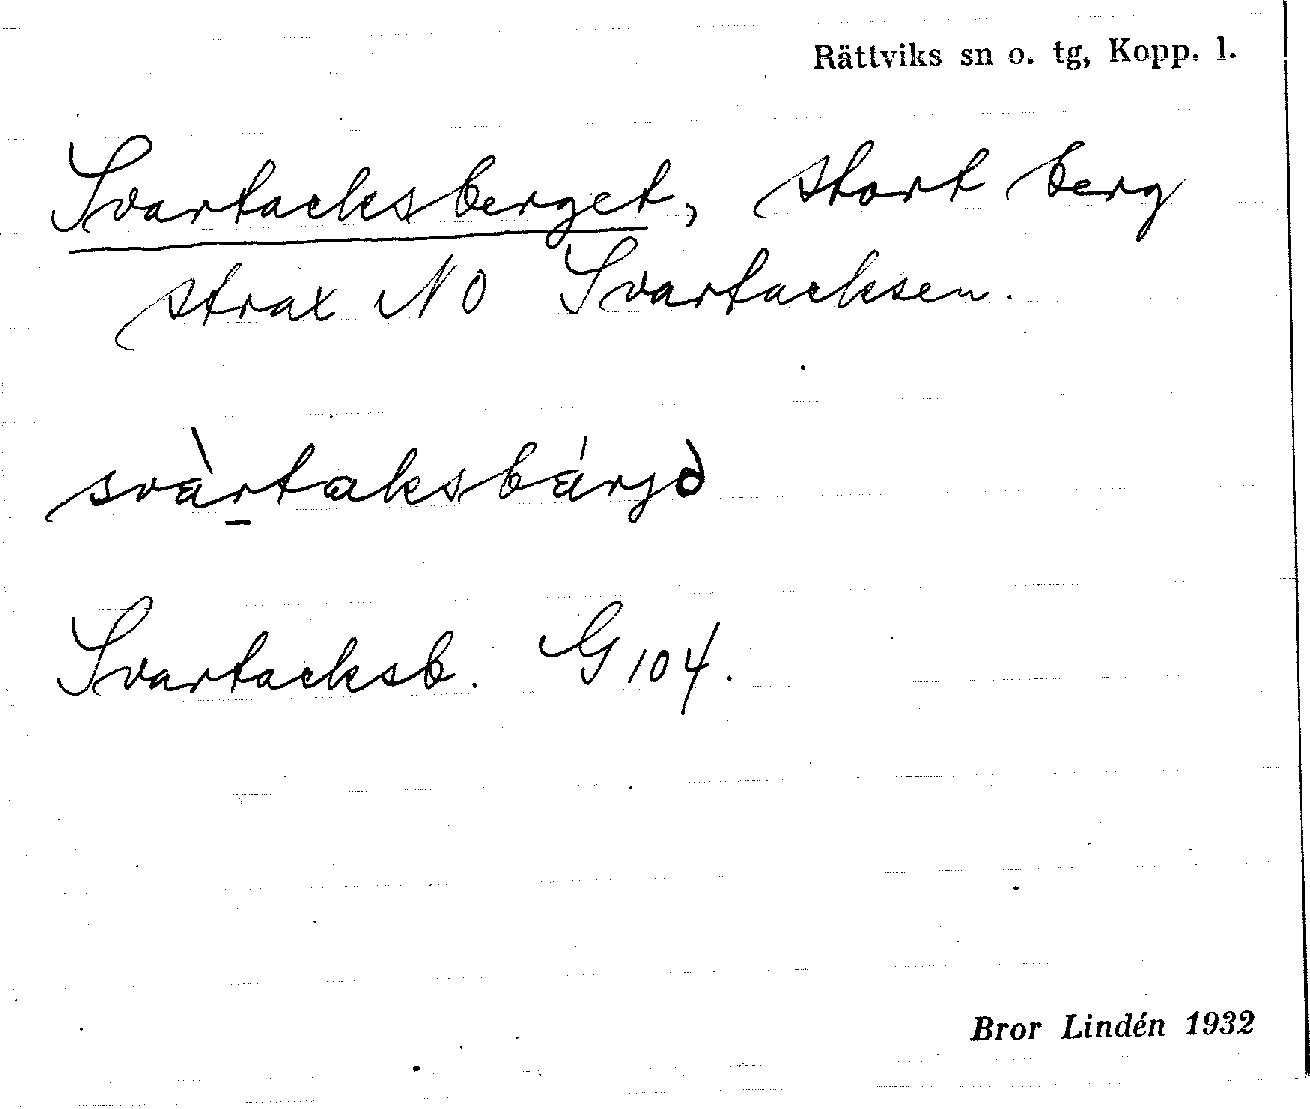 Rättviks sn o. tg, Kopp. l.
Svartacksberget, stort berg
strax NO Svartacksen.
svàrtaksbárjò
Svartacksb. G 104.
Bror Lindén 1932